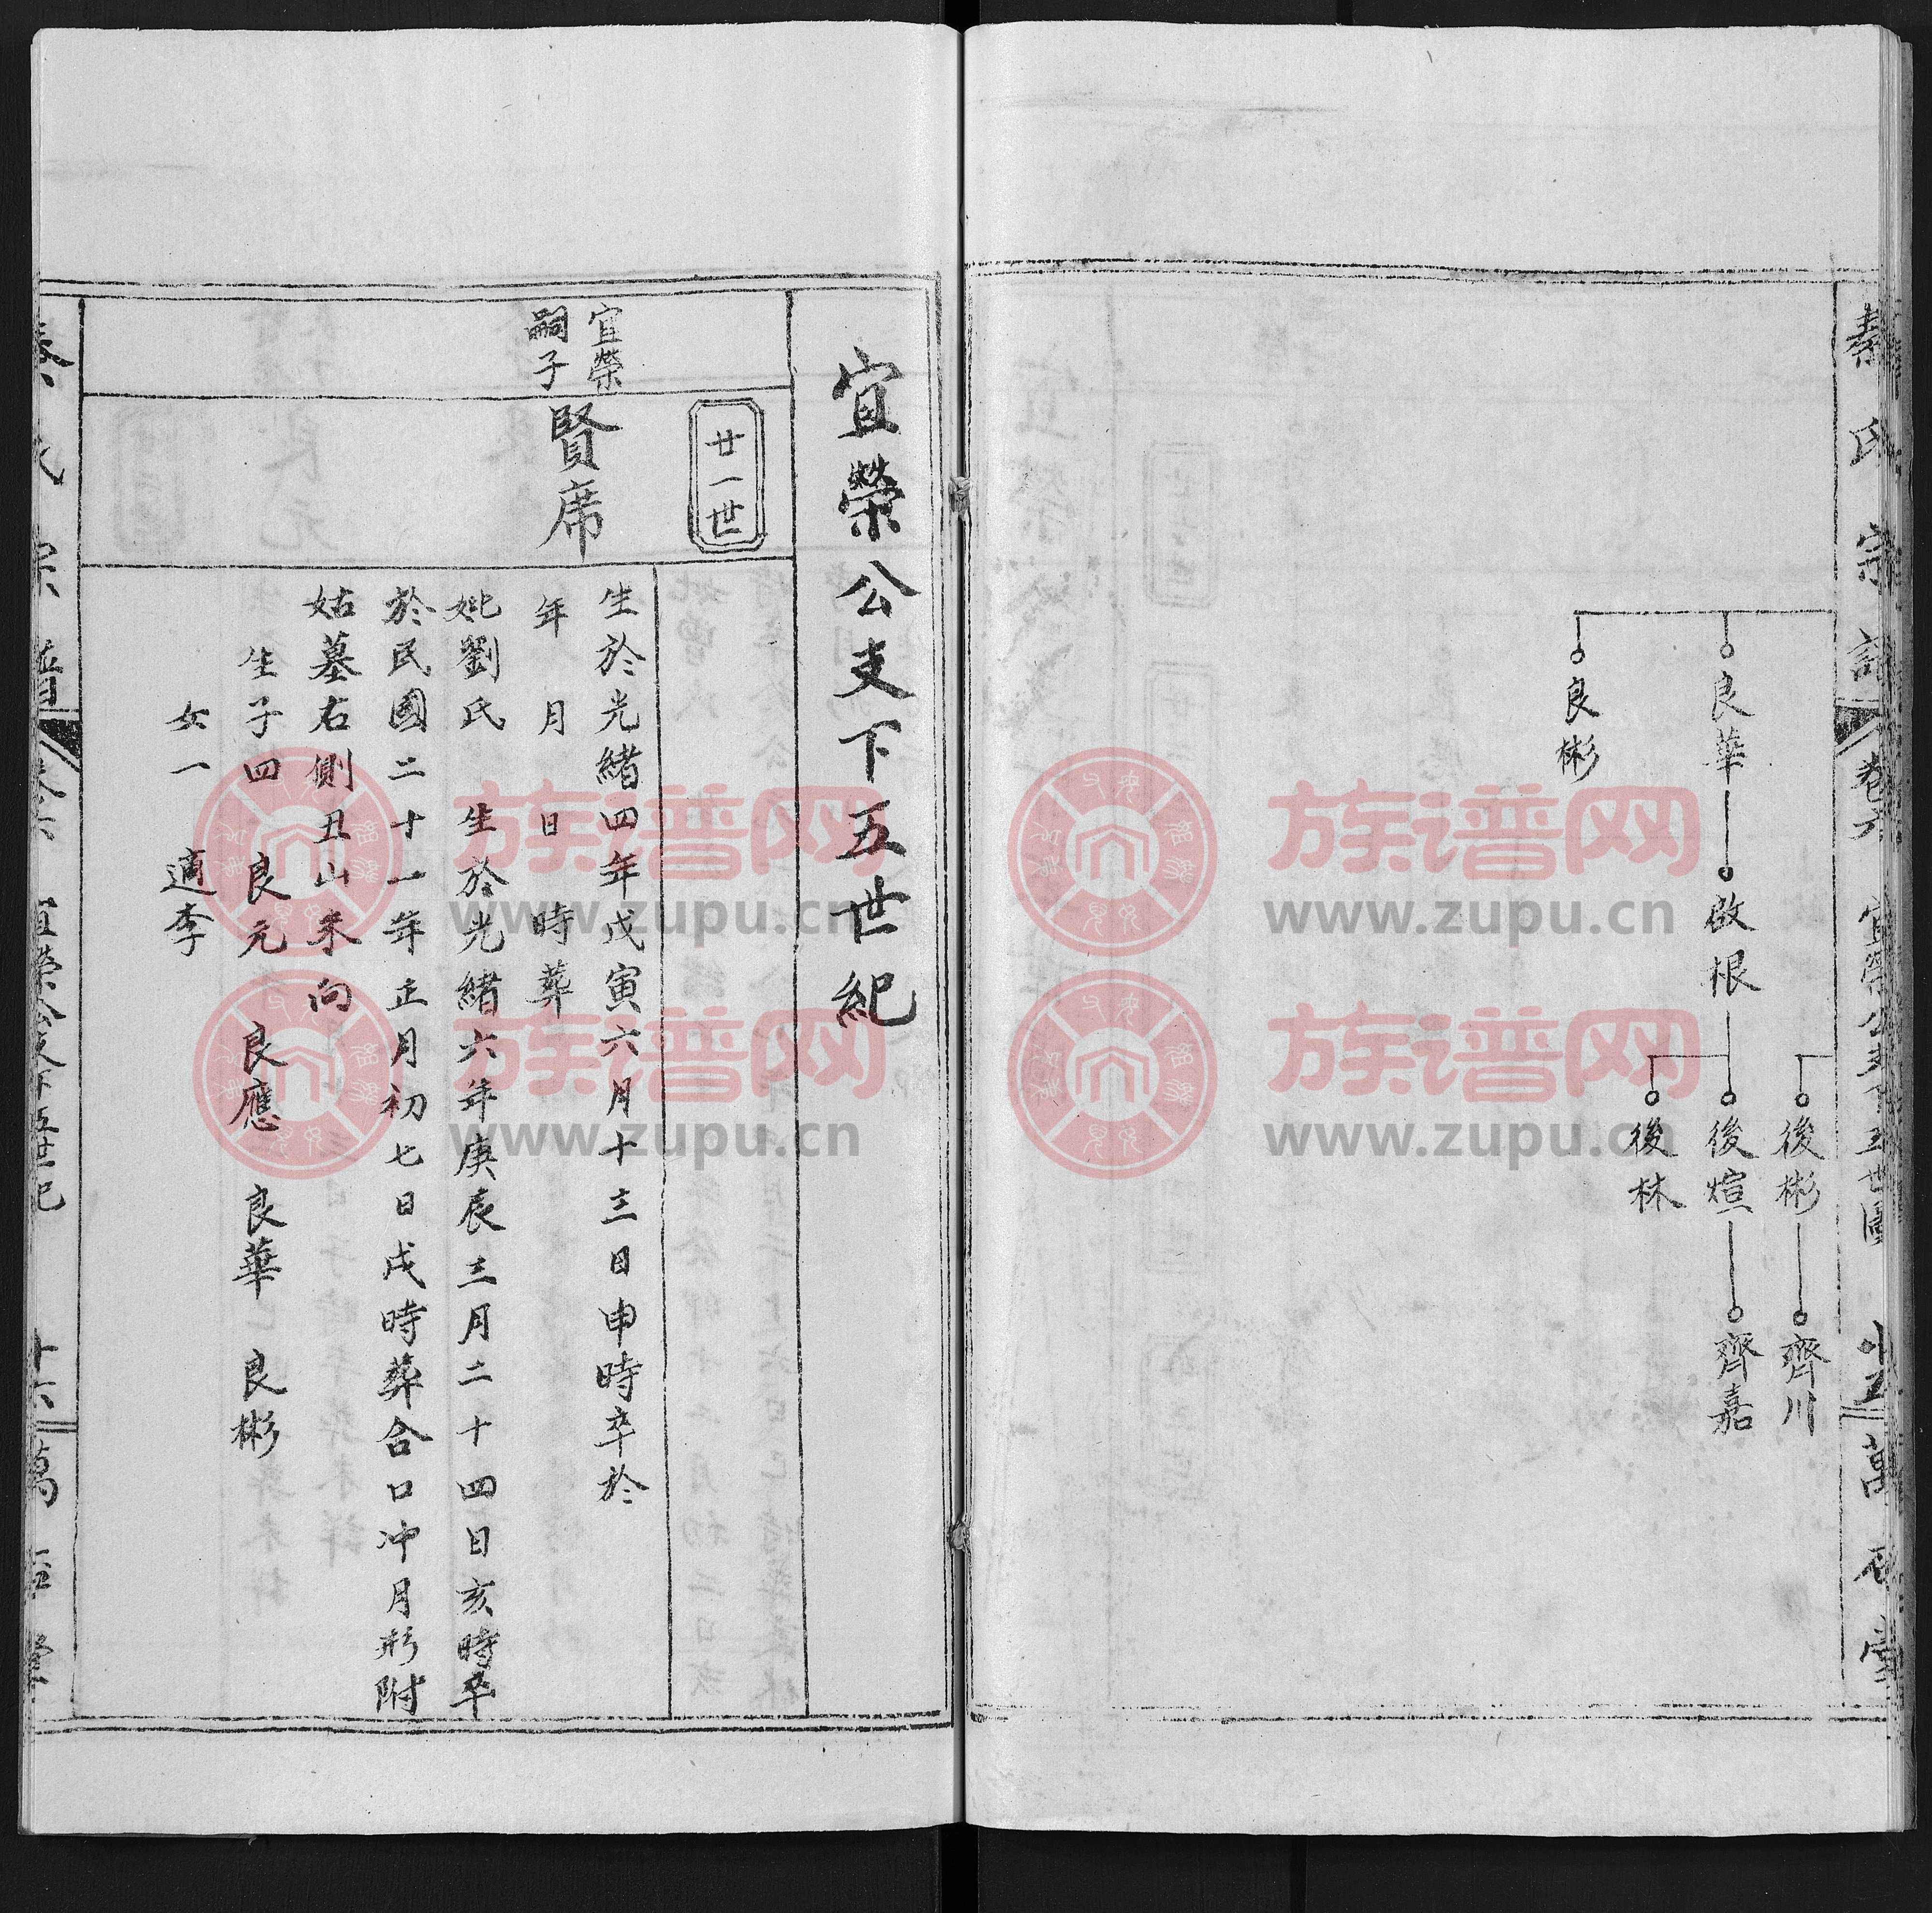 秦氏宗譜
卷六
宜榮公支下五世圖
十五
萬
堂
良華
啟根
良彬
後彬
齊川
後煊
齊嘉
後林
宜榮公支下五世紀
廿一世
宜榮
嗣子
賢席
生於光緒四年戊寅六月十三日申時卒於
年 月 日 時葬
妣劉氏 生於光緒六年庚辰三月二十四日亥時卒
於民國二十一年正月初七日戌時葬合口冲月形附
姑墓右側丑山未向
生子四 良元 良應 良華 良彬
女一 適李
秦氏宗譜
卷六
宜榮公支下五世紀
十六
萬
堂
族谱网
www.zupu.cn
族谱网
www.zupu.cn
族谱网
www.zupu.cn
族谱网
www.zupu.cn